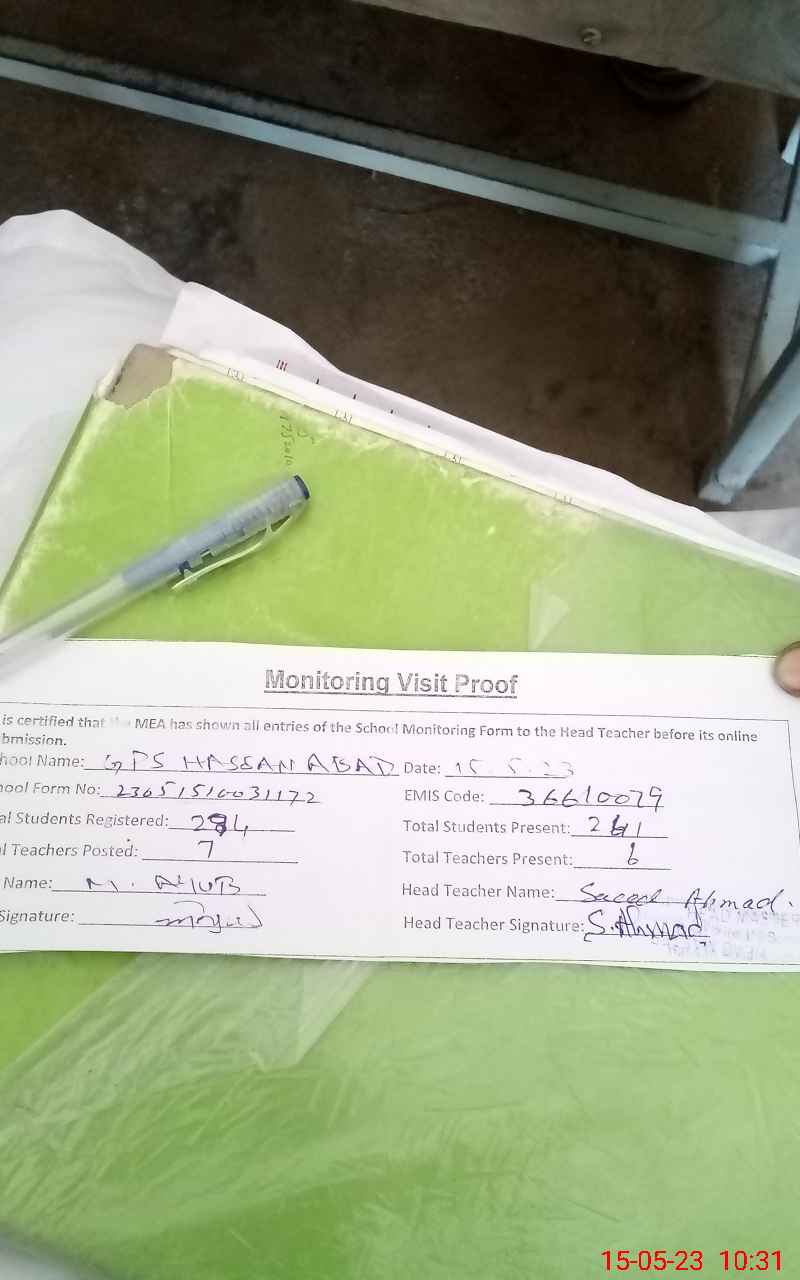 Monitoring Visit Proof
is certified that the MEA has shown all entries of the School Monitoring Form to the Head Teacher before its online
bmission.
hool Name: GPS HASSAN ABAD Date: 15.5.23
ool Form No: 23651516031172 EMIS Code: 36610079
al Students Registered: 284 Total Students Present: 241
l Teachers Posted: 7 Total Teachers Present: 6
Name: M. AYUB Head Teacher Name: Saeed Ahmad.
Signature: Head Teacher Signature: S.Ahmad
15-05-23 10:31